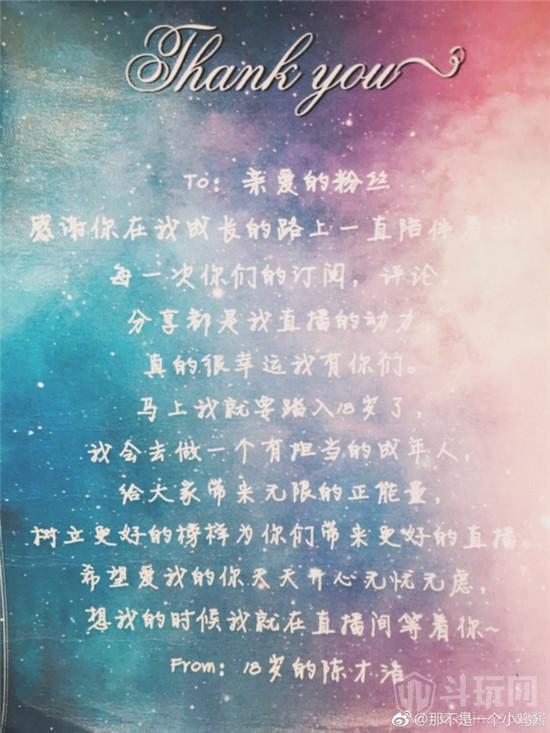 Thank you
To：亲爱的粉丝
感谢你在我成长的路上一直陪伴着我
每一次你们的订阅，评论，
分享都是我直播的动力，
真的很幸运我有你们。
马上我就要踏入18岁了，
我会去做一个有担当的成年人，
给大家带来无限的正能量，
树立更好的榜样为你们带来更好的直播。
希望爱我的你天天开心无忧无虑，
想我的时候我就在直播间等着你~
From：18岁的陈才洁
斗玩网
@那不是一个小鸡酱